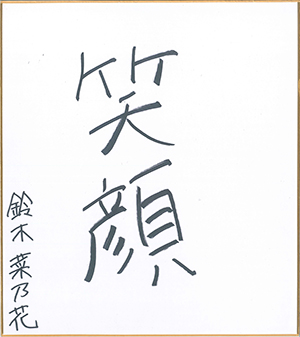 笑顔
鈴木菜乃花